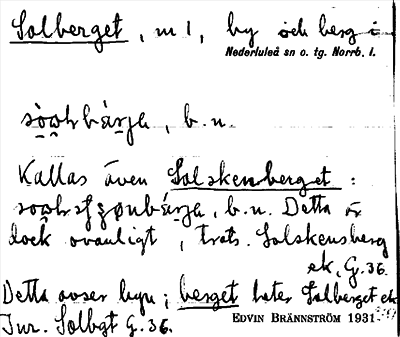 Solberget, m 1, by och berg i
Nederluleå sn o. tg. Norrb. l.
b.n.
Kallas även Solskensberget:
b.n. Detta är
dock ovanligt, trots Solskensberg
ek, G. 36.
Detta avser byn; berget heter Solberget ek
Jur. Solbgt G. 36.
EDVIN BRÄNNSTRÖM 1931